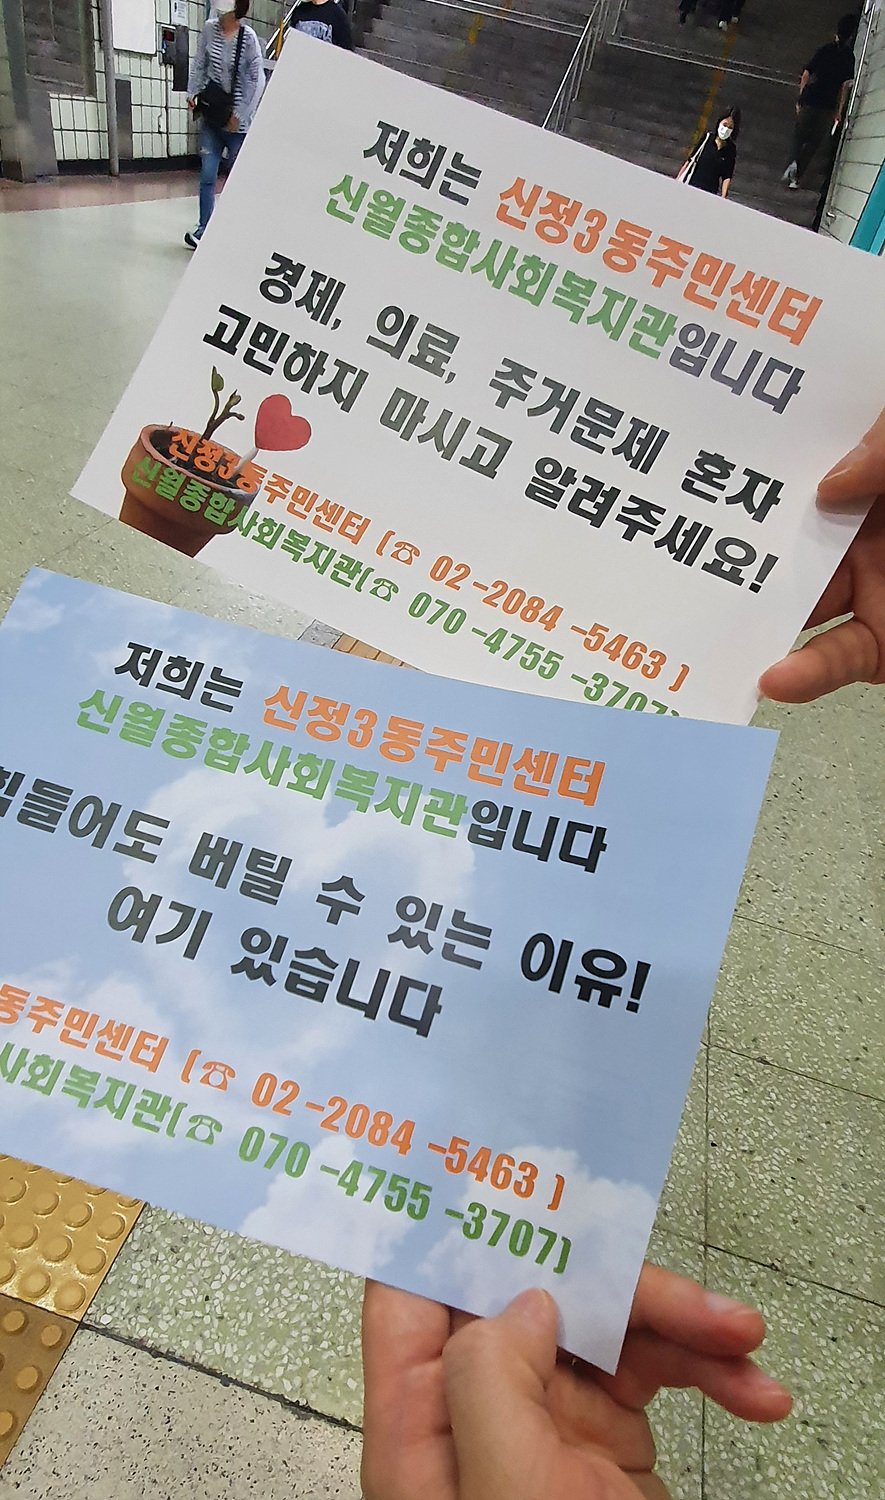 저희는 신정3동주민센터
신월종합사회복지관입니다
경제, 의료, 주거문제 혼자
고민하지 마시고 알려주세요!
신정3동주민센터 (☎ 02-2084-5463)
신월종합사회복지관(☎ 070-4755-3707)
저희는 신정3동주민센터
신월종합사회복지관입니다
힘들어도 버틸 수 있는 이유!
여기 있습니다
동주민센터 (☎ 02-2084-5463)
사회복지관(☎ 070-4755-3707)